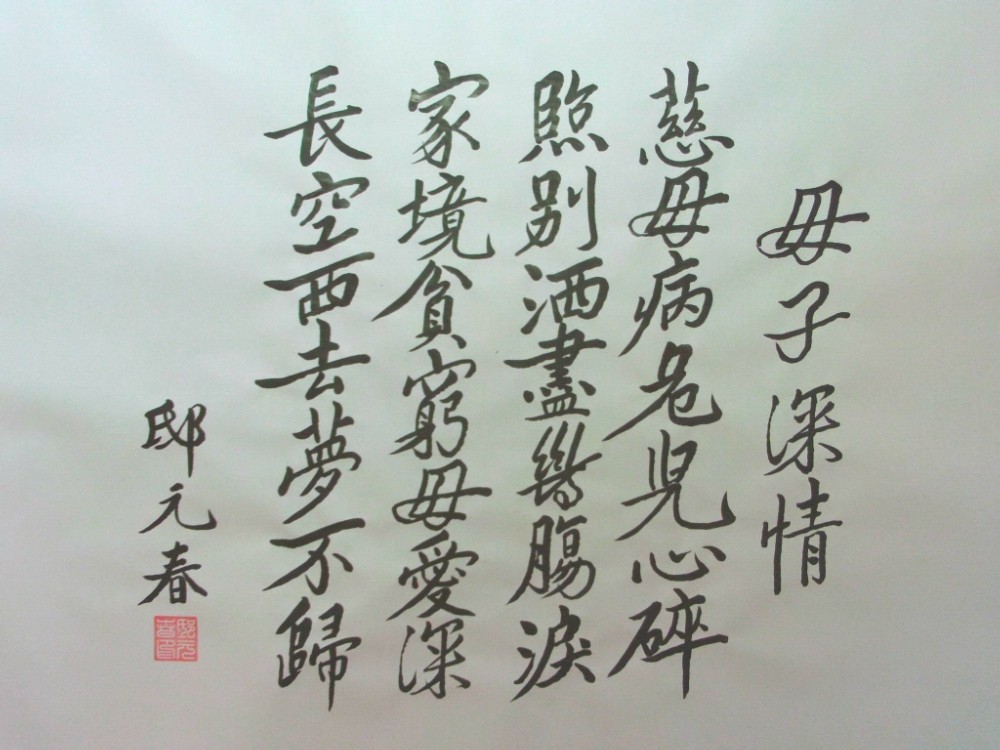 母子深情
慈母病危兒心碎
臨别洒盡斷腸淚
家境貧窮母愛深
長空西去夢不歸
邸元春